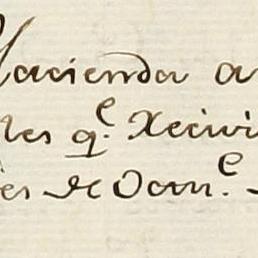 Hacienda a
les q.e Xecivi
es de Dom.e